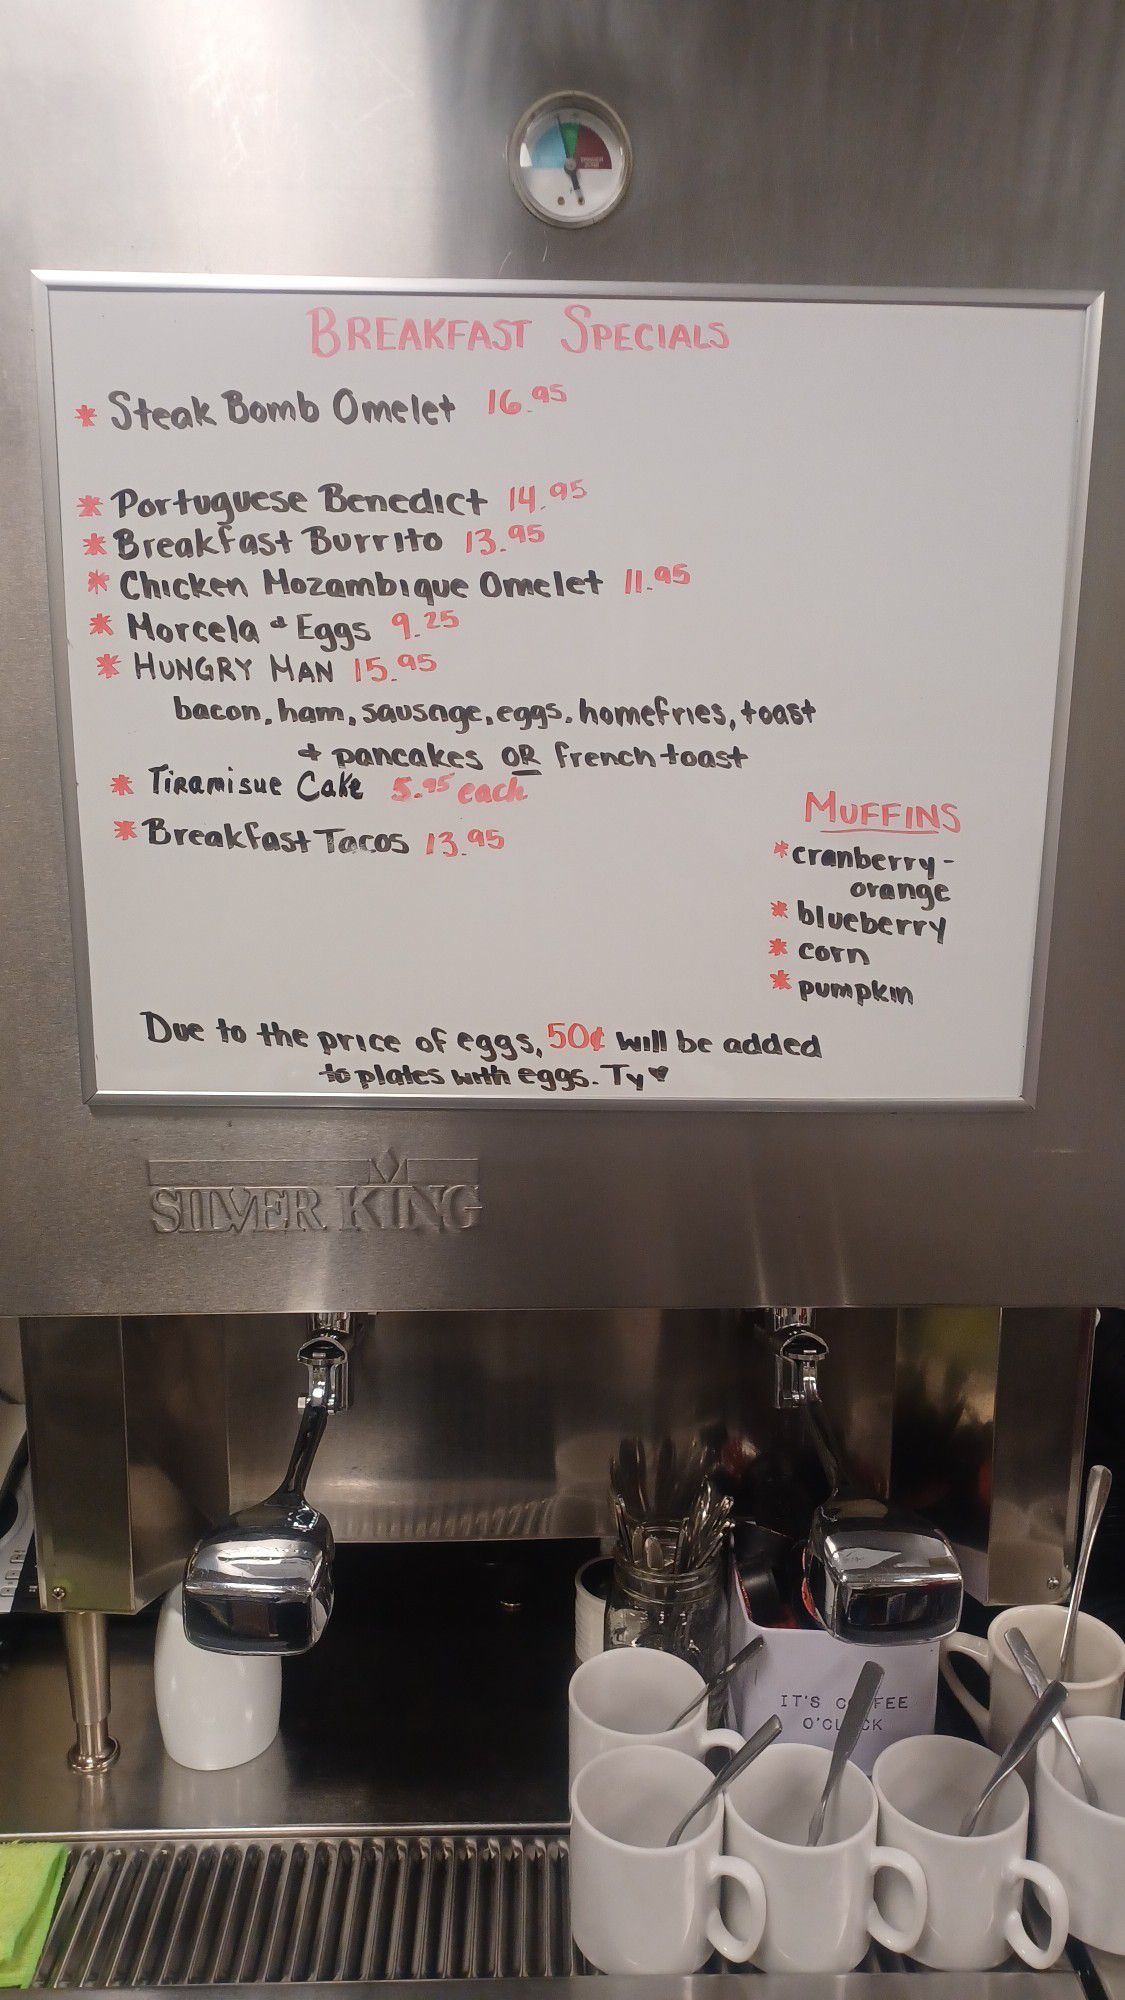 BREAKFAST SPECIALS
* Steak Bomb Omelet 16.95
* Portuguese Benedict 14.95
* Breakfast Burrito 13.95
* Chicken Mozambique Omelet 11.95
* Morcela & Eggs 9.25
* HUNGRY MAN 15.95
bacon, ham, sausage, eggs, homefries, toast
& pancakes OR french toast
* Tiramisue Cake 5.95 each
* Breakfast Tacos 13.95
MUFFINS
* cranberry-
orange
* blueberry
* corn
* pumpkin
Due to the price of eggs, 50¢ will be added
to plates with eggs. Ty ♥
SILVER KING
IT'S COFFEE
O'CLOCK